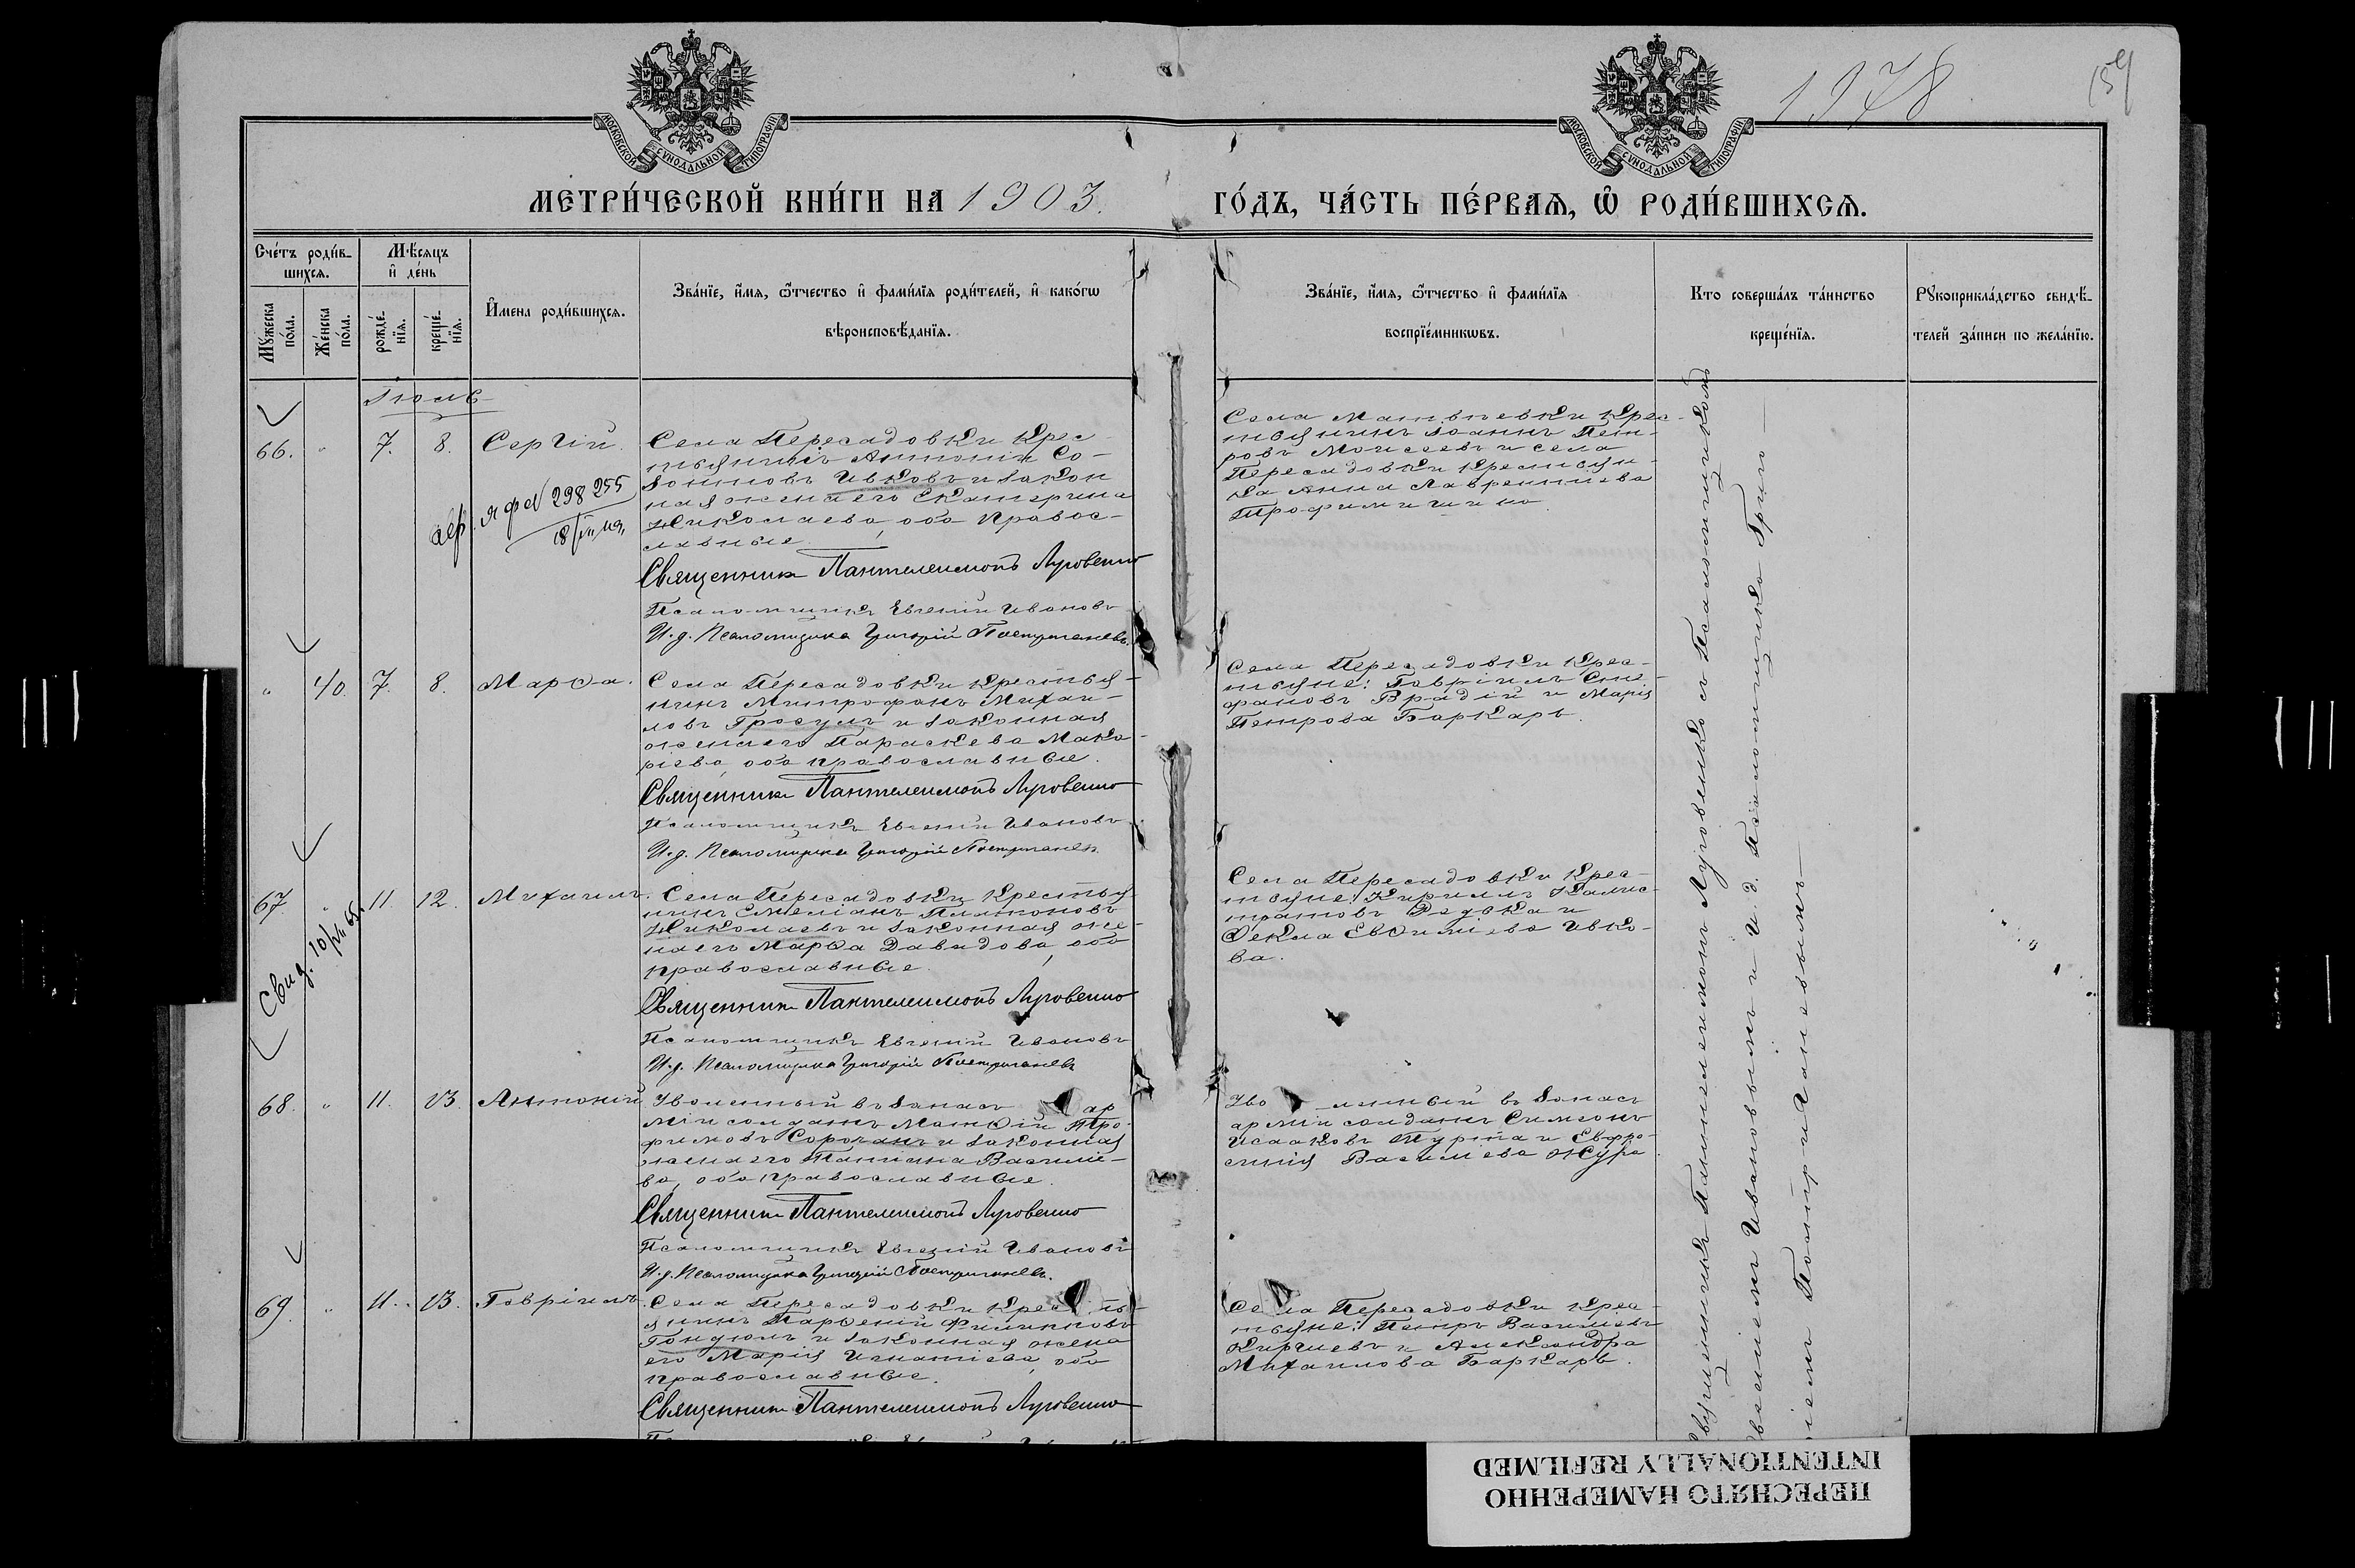 1978
159
МОСКОВСКОЙ СУНОДАЛЬНОЙ ТИПОГРАФІИ
МОСКОВСКОЙ СУНОДАЛЬНОЙ ТИПОГРАФІИ
МЕТРИ́ЧЕСКОЙ КНИ́ГИ НА 1903.
ГО́ДЪ, ЧА́СТЬ ПЕ́РВАЯ, Ѽ РОДИ́ВШИХСЯ.
Сче́тъ роди́в-
шихся.
Му́жеска по́ла.
Же́нска по́ла.
Мѣ́сяцъ
и҆ де́нь
рожде́-
нїя.
креще́-
нїя.
И҆мена роди́вшихся.
Зва́нїе, и҆́мя, ѻ҆́тчество и҆ фами́лїя роди́телей, и҆ како́гѡ
вѣроисповѣ́данїя.
Зва́нїе, и҆́мя, ѻ҆́тчество и҆ фами́лїя
воспрїе́мникѡвъ.
Кто соверша́лъ та́инство
креще́нїя.
Рукоприкла́дство свидѣ́-
телей за́писи по жела́нїю.
Іюль
66. " 7. 8. Сергій.
Села Пересадовки крес-
тьянинъ Антоній Со-
зонтовъ Ивковъ и закон
ная жена его Екатерина
Николаева, оба правос-
лавные.
Священникъ Пантелеимонъ Луговенко
Псаломщикъ Евгеній Ивановъ
И.д. Псаломщика Григорій
298255
Села Матвѣевки крес-
тьянинъ Іоаннъ Пет-
ровъ Моисеевъ и села
Пересадовки крестьян-
ка Анна Лаврентіева
Трофимишина.
" 40. 7. 8. Марѳа.
Села Пересадовки крестья-
нинъ Митрофанъ Михаи-
ловъ Гросулъ и законная
жена его Параскева Мака-
ріева, оба православные.
Священникъ Пантелеимонъ Луговенко
Псаломщикъ Евгеній Ивановъ
И.д. Псаломщика Григорій
Села Пересадовки крес-
тьяне: Гавріилъ Сте-
фановъ Врадій и Марія
Петрова Баркарь.
67. " 11. 12. Михаилъ.
Свид. 10/
Села Пересадовки крестья-
нинъ Емеліанъ Платоновъ
Николаевъ и законная же-
на его Марѳа Давидова, оба
православные.
Священникъ Пантелеимонъ Луговенко
Псаломщикъ Евгеній Ивановъ
И.д. Псаломщика Григорій
Села Пересадовки крес-
тьяне: Кириллъ Калис-
тратовъ Редька и
Ѳекла Евѳиміева Ивко-
ва.
68. " 11. 13. Антоній
Уволенный въ запасъ ар
міи солдатъ Матѳій Тро-
фимовъ Сорочанъ и законная
жена его Татіана Василіе-
ва, оба православные.
Священникъ Пантелеимонъ Луговенко
Псаломщикъ Евгеній Ивановъ
И.д. Псаломщика Григорій
Уво ленный въ запасъ
арміи солдатъ Симеонъ
Исааковъ Турта и Евфро-
синія Василіева Жура
69. " 11. 13. Гавріилъ.
Села Пересадовки кресть-
янинъ Парѳеній Филипповъ
Гондюлъ и законная жена
его Марія Игнатіева, оба
православные.
Священникъ Пантелеимонъ Луговенко
Села Пересадовки крес-
тьяне: Петръ Василіевъ
Киргіевъ и Александра
Михаилова Баркарь.
Священникъ Пантелеимонъ Луговенко съ Псаломщикомъ
Евгеніемъ Ивановымъ и И.д. Псаломщика Григо-
ріемъ
ПЕРЕСНЯТО НАМЕРЕННО
INTENTIONALLY REFILMED